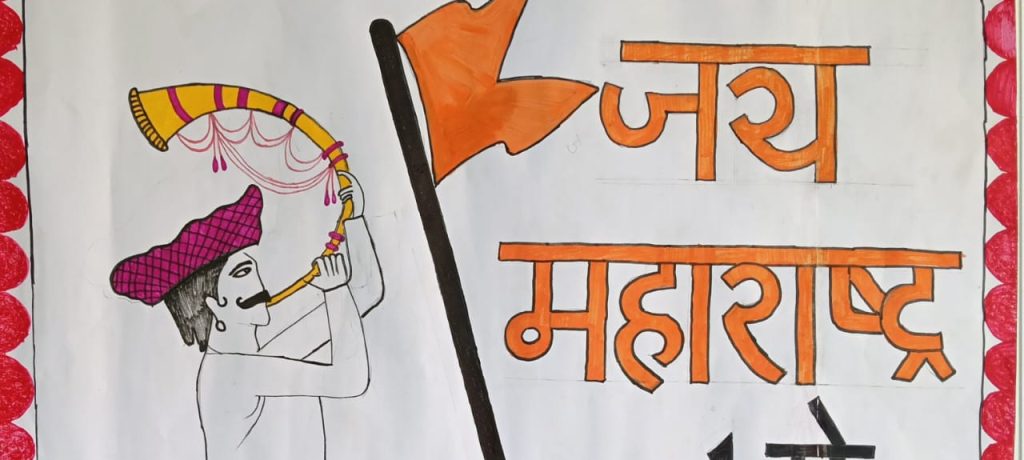 जय
महाराष्ट्र